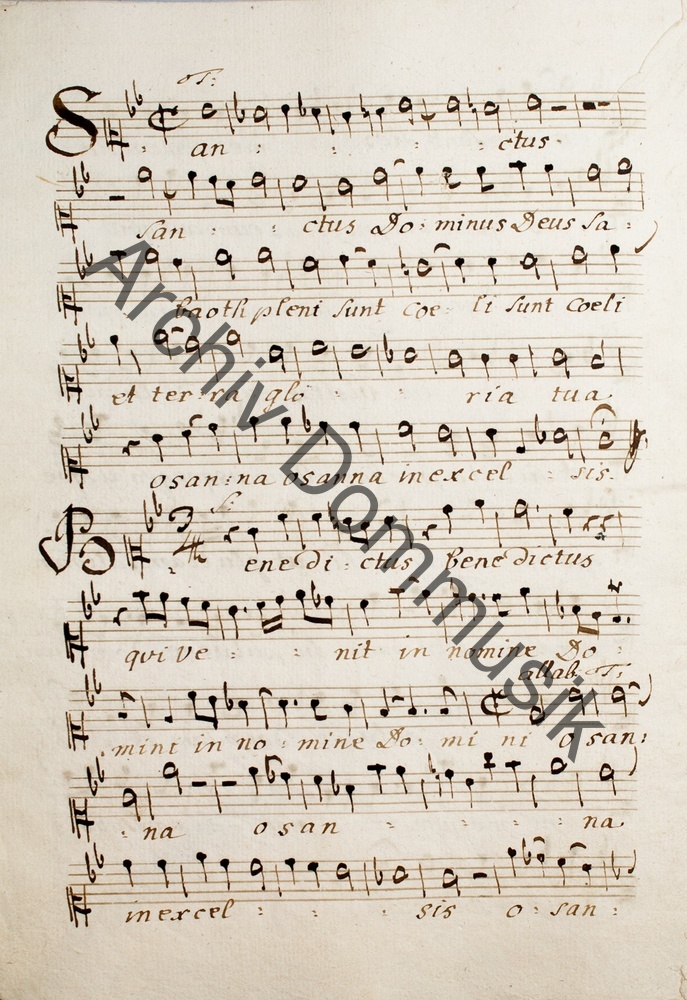 T:
San : : : : ctus.
San : : : ctus Do : minus Deus Sa :
baoth pleni sunt coe : li sunt coeli
et ter : ra glo : : : ria tua
osan : na osanna in excel : sis.
S:
Benedi : ctus benedictus
3/4
qui ve : : : nit in nomine Do :
allab. T:
mini in no : mine Do : mi ni osan :
: na osan : : : : na
in excel : : : : sis o : san :
Archiv Dommusik